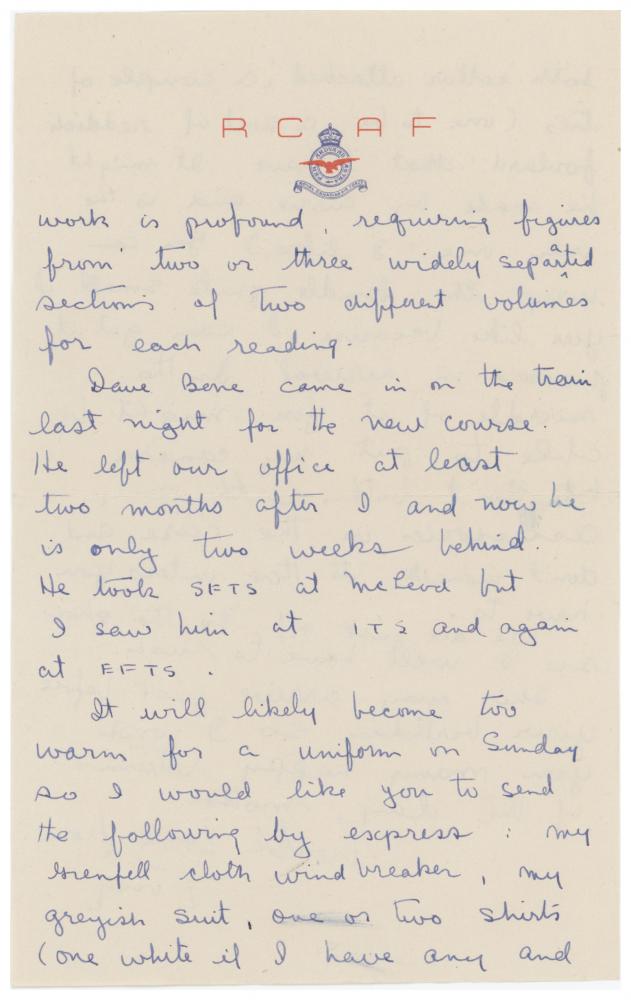 R C A F
work is profound, requiring figures
from two or three widely separated
sections of two different volumes
for each reading.
Dave Bone came in on the train
last night for the new course.
He left our office at least
two months after I and now he
is only two weeks behind.
He took SFTS at McLeod but
I saw him at ITS and again
at EFTS.
It will likely become too
warm for a uniform on Sunday
so I would like you to send
the following by express: my
Grenfell cloth wind breaker, my
greyish suit, one or two shirts
(one white if I have any and